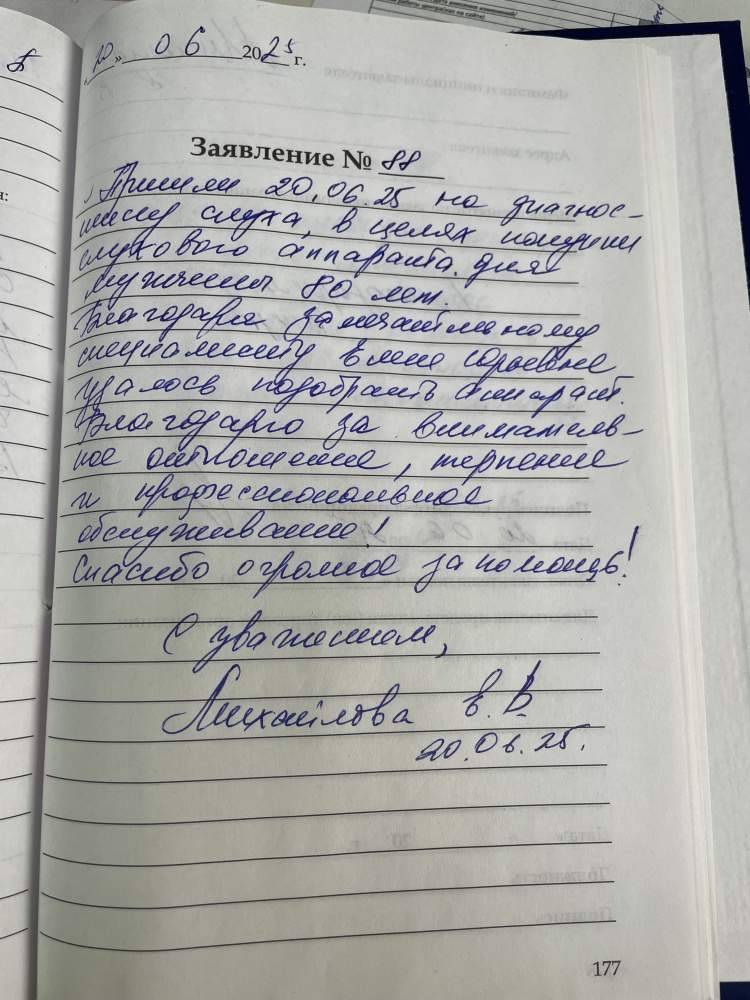 «20» 06 2025 г.
Заявление № 88
Пришли 20.06.25 на диагнос-
тику слуха, в целях покупки
слухового аппарата для
мужчины 80 лет.
Благодаря замечательному
специалисту Юрьевне
удалось подобрать аппарат.
Благодарю за вниматель-
ное отношение, терпение
и профессиональное
обслуживание!
Спасибо огромное за помощь!
С уважением,
Михайлова В.
20.06.25.
177